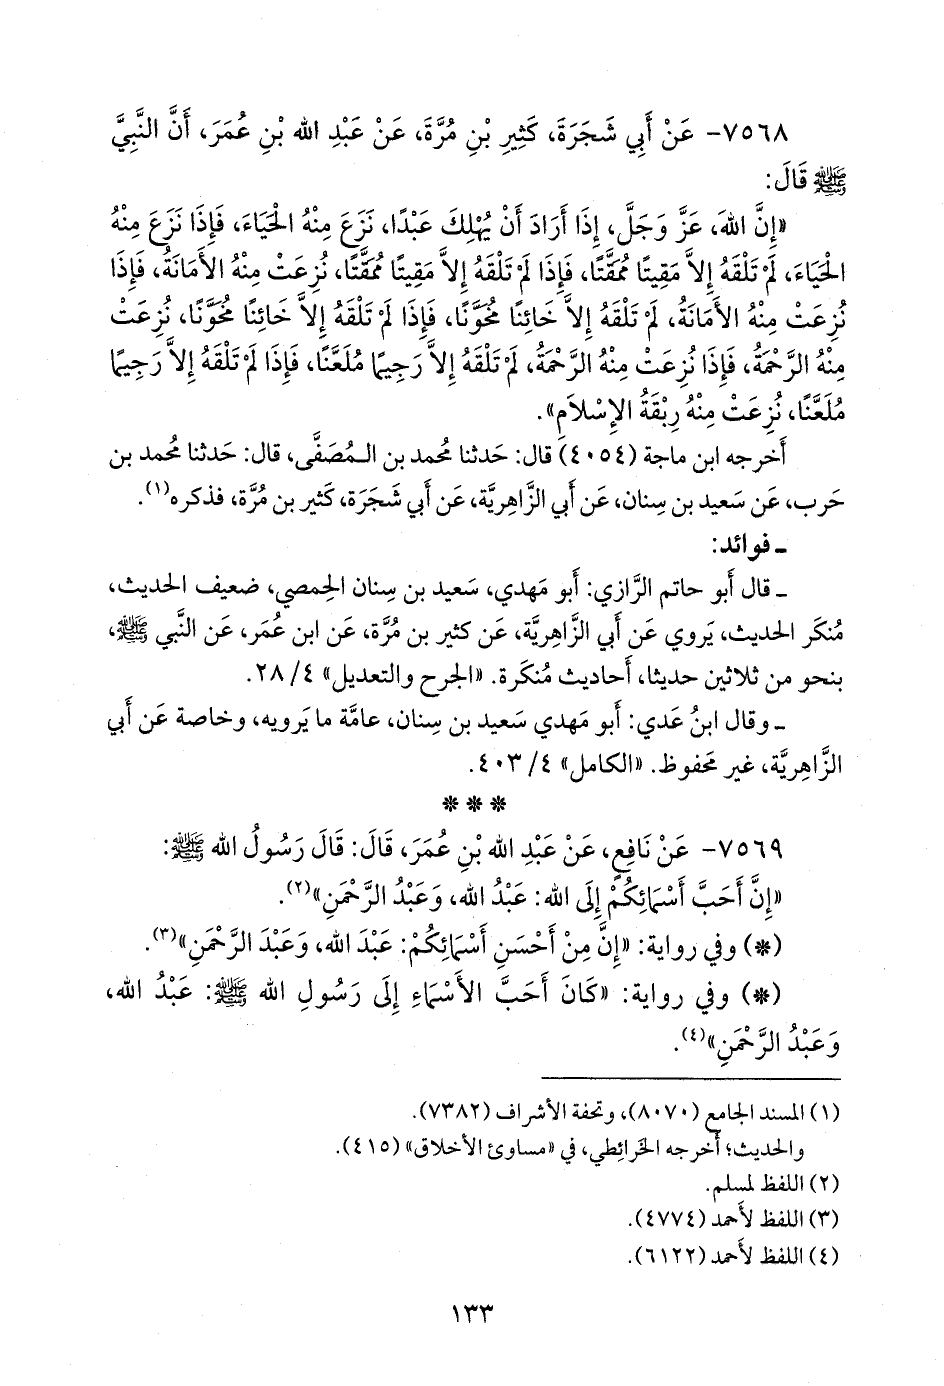 ٧٥٦٨- عَنْ أَبِي شَجَرَةَ، كَثِيرِ بْنِ مُرَّةَ، عَنْ عَبْدِ الله بْنِ عُمَرَ، أَنَّ النَّبِيَّ
ﷺ قَالَ:
«إِنَّ اللهَ، عَزَّ وَجَلَّ، إِذَا أَرَادَ أَنْ يُهْلِكَ عَبْدًا، نَزَعَ مِنْهُ الْحَيَاءَ، فَإِذَا نَزَعَ مِنْهُ
الْحَيَاءَ، لَمْ تَلْقَهُ إِلاَّ مَقِيتًا مُمَقَّتًا، فَإِذَا لَمْ تَلْقَهُ إِلاَّ مَقِيتًا مُمَقَّتًا، نُزِعَتْ مِنْهُ الأَمَانَةُ، فَإِذَا
نُزِعَتْ مِنْهُ الأَمَانَةُ، لَمْ تَلْقَهُ إِلاَّ خَائِنًا مُخَوَّنًا، فَإِذَا لَمْ تَلْقَهُ إِلاَّ خَائِنًا مُخَوَّنًا، نُزِعَتْ
مِنْهُ الرَّحْمَةُ، فَإِذَا نُزِعَتْ مِنْهُ الرَّحْمَةُ، لَمْ تَلْقَهُ إِلاَّ رَجِيمًا مُلَعَّنًا، فَإِذَا لَمْ تَلْقَهُ إِلاَّ رَجِيمًا
مُلَعَّنًا، نُزِعَتْ مِنْهُ رِبْقَةُ الإِسْلاَمِ».
أَخرجه ابن ماجة (٤٠٥٤) قال: حَدثنا مُحمد بن الـمُصَفَّى، قال: حَدثنا مُحمد بن
حَرب، عَن سَعيد بن سِنان، عَن أَبي الزَّاهِريَّة، عَن أَبي شَجَرَة، كَثير بن مُرَّة، فذكره(١).
ـ فوائد:
ـ قال أَبو حاتم الرَّازي: أَبو مَهدي، سَعيد بن سِنان الحِمصي، ضعيف الحديث،
مُنكَر الحديث، يَروي عَن أَبي الزَّاهِريَّة، عَن كثير بن مُرَّة، عَن ابن عُمَر، عَن النَّبي ﷺ،
بنحو من ثلاثين حديثا، أَحاديث مُنكَرة. «الجرح والتعديل» ٤/ ٢٨.
ـ وقال ابنُ عَدي: أَبو مَهدي سَعيد بن سِنان، عامَّة ما يَرويه، وخاصة عَن أَبي
الزَّاهِريَّة، غير مَحفوظ. «الكامل» ٤/ ٤٠٣.
* * *
٧٥٦٩- عَنْ نَافِعٍ، عَنْ عَبْدِ الله بْنِ عُمَرَ، قَالَ: قَالَ رَسُولُ الله ﷺ:
«إِنَّ أَحَبَّ أَسْمَائِكُمْ إِلَى الله: عَبْدُ الله، وَعَبْدُ الرَّحْمَنِ»(٢).
(*) وفي رواية: «إِنَّ مِنْ أَحْسَنِ أَسْمَائِكُمْ: عَبْدَ الله، وَعَبْدَ الرَّحْمَنِ»(٣).
(*) وفي رواية: «كَانَ أَحَبَّ الأَسْمَاءِ إِلَى رَسُولِ الله ﷺ: عَبْدُ الله،
وَعَبْدُ الرَّحْمَنِ»(٤).
(١) المسند الجامع (٨٠٧٠)، وتحفة الأشراف (٧٣٨٢).
والحديث؛ أَخرجه الخَرائِطي، في «مساوئ الأخلاق» (٤١٥).
(٢) اللفظ لمسلم.
(٣) اللفظ لأَحمد (٤٧٧٤).
(٤) اللفظ لأَحمد (٦١٢٢).
١٣٣